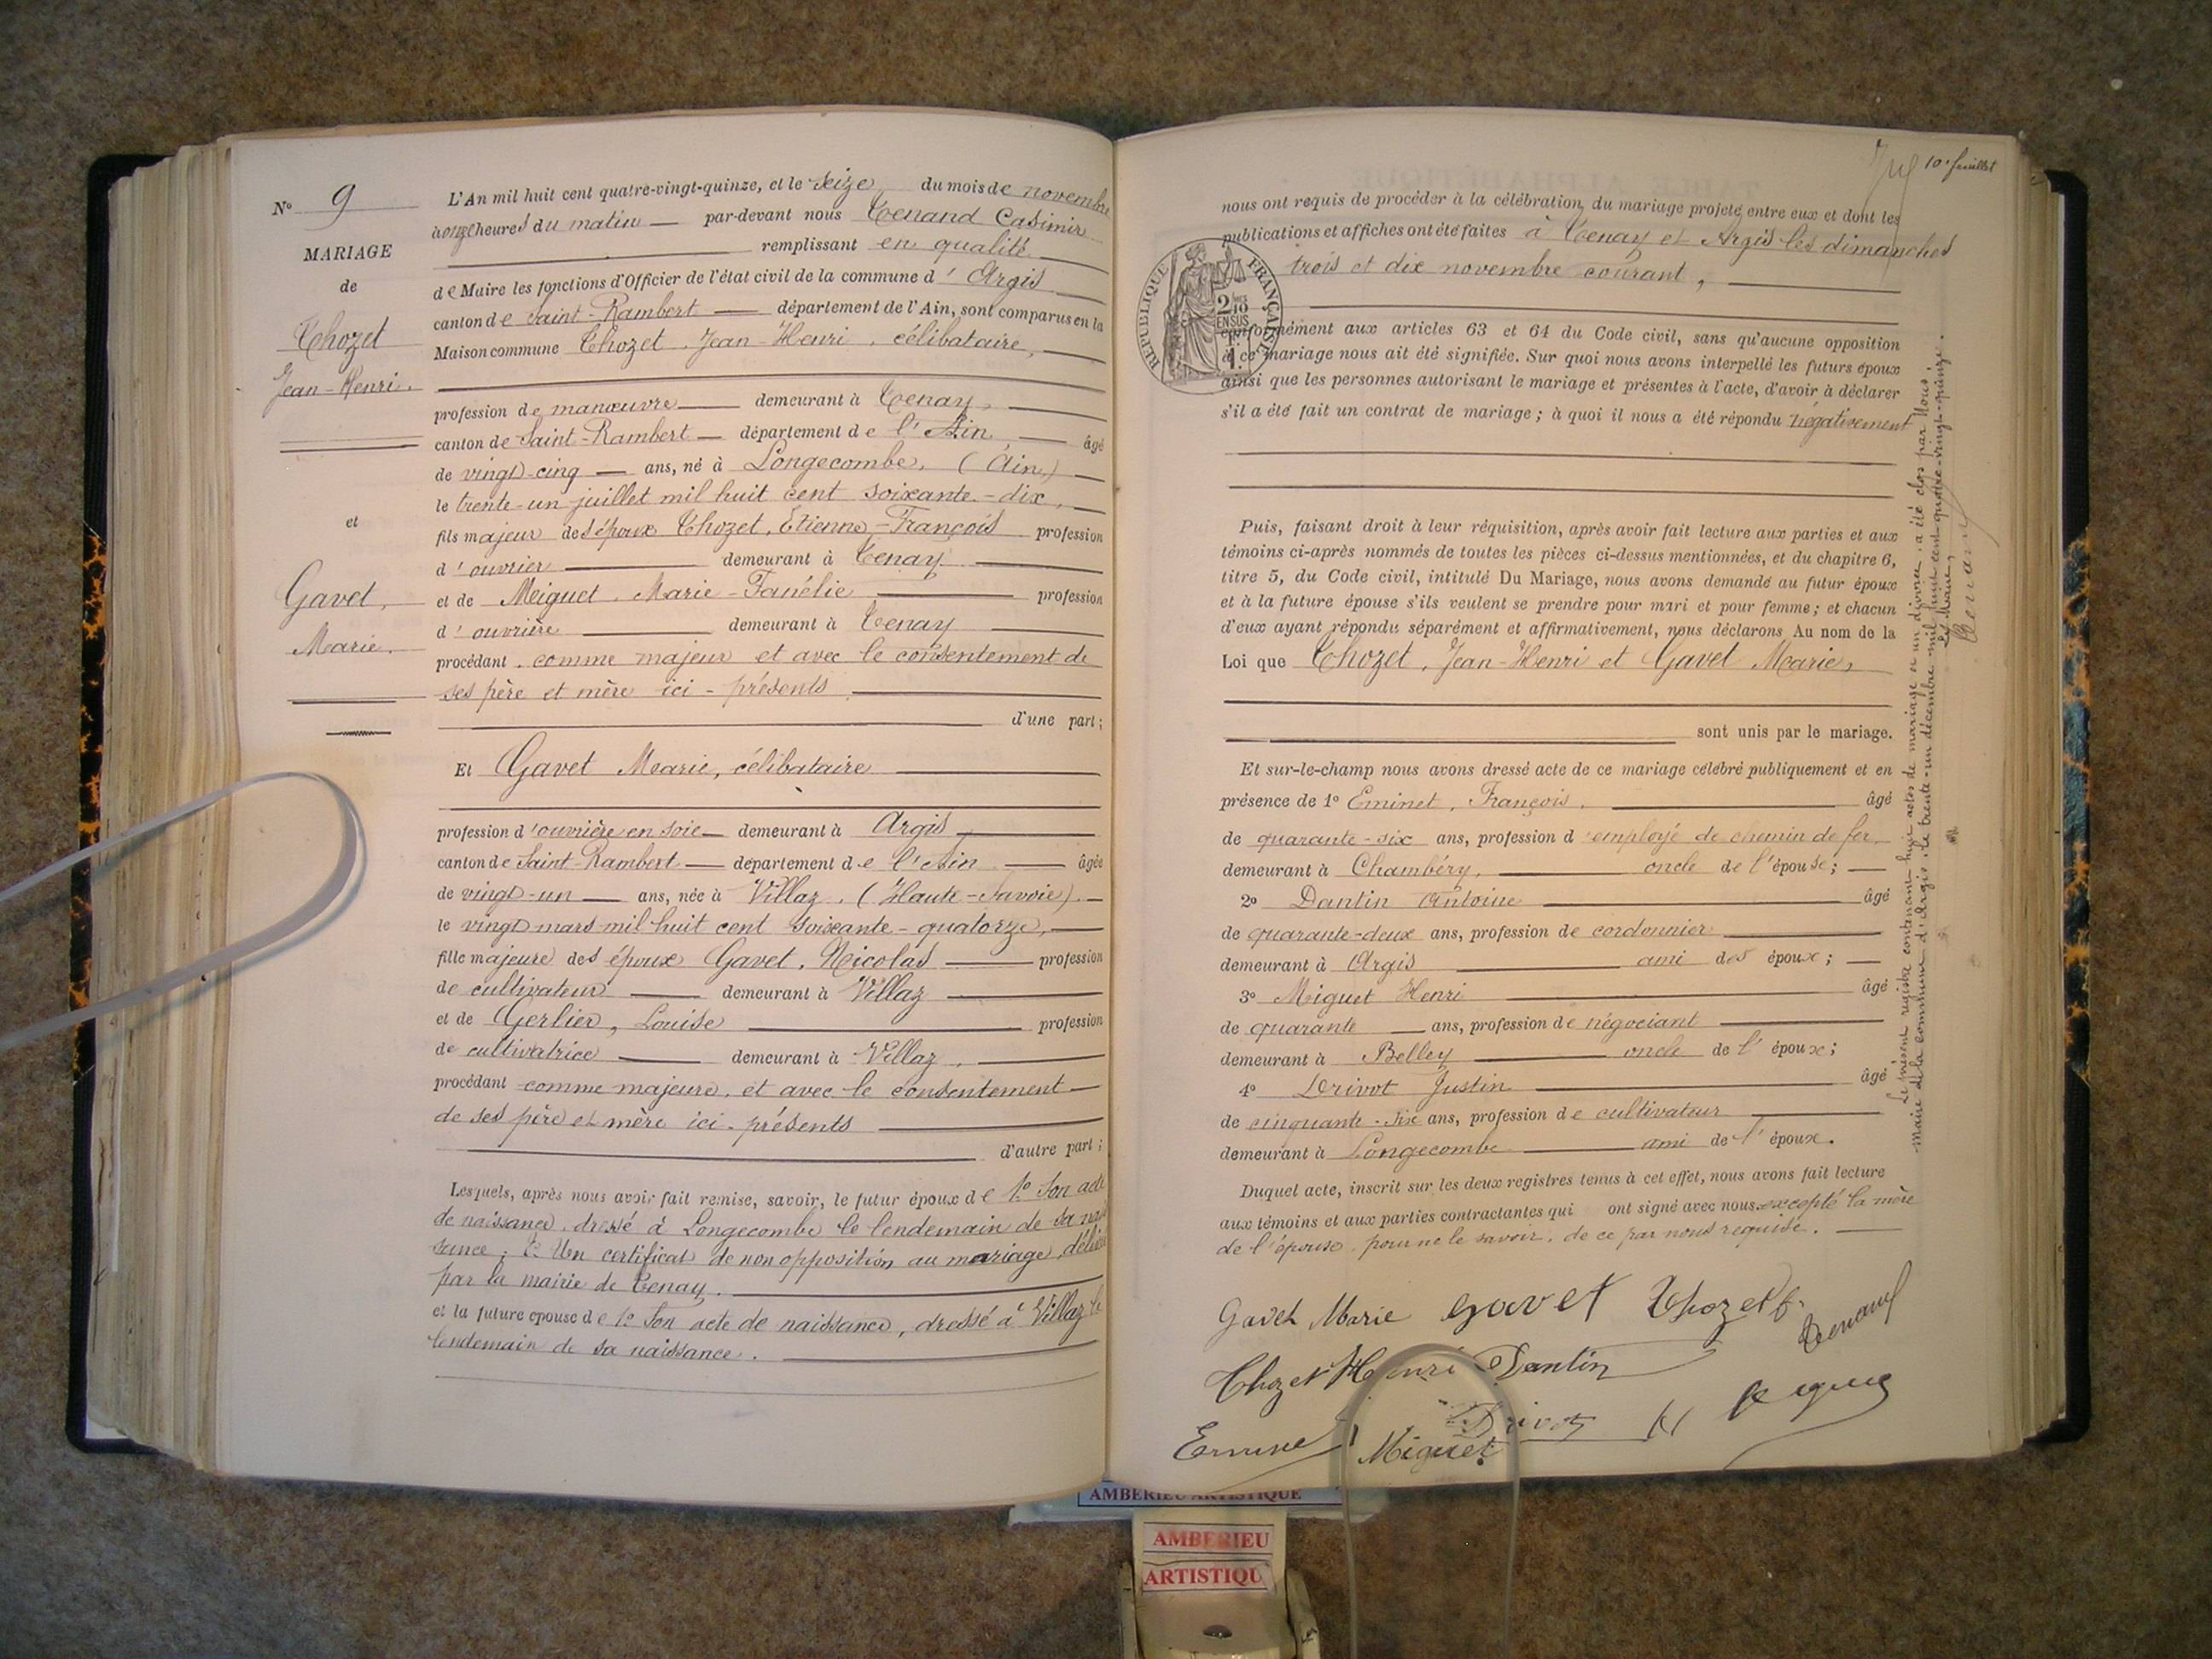 N° 9
MARIAGE
de
Thozet
Jean-Henri.
et
Gavet,
Marie.
L'An mil huit cent quatre-vingt-quinze, et le seize du mois de novembre
à onze heures du matin par-devant nous Tenand Casimir
remplissant en qualité
de Maire les fonctions d'Officier de l'état civil de la commune d'Argis
canton de Saint-Rambert département de l'Ain, sont comparus en la
Maison commune Thozet, Jean-Henri, célibataire,
profession de manœuvre demeurant à Tenay,
canton de Saint-Rambert département de l'Ain âgé
de vingt-cinq ans, né à Longecombe, (Ain)
le trente-un juillet mil huit cent soixante-dix,
fils majeur des époux Thozet, Etienne-François profession
d'ouvrier demeurant à Tenay
et de Meiguet, Marie-Fanélie profession
d'ouvrière demeurant à Tenay
procédant comme majeur et avec le consentement de
ses père et mère ici-présents
d'une part;
Et Gavet Marie, célibataire
profession d'ouvrière en soie demeurant à Argis
canton de Saint-Rambert département de l'Ain âgée
de vingt-un ans, née à Villaz, (Haute-Savoie),
le vingt mars mil huit cent soixante-quatorze,
fille majeure des époux Gavet, Nicolas profession
de cultivateur demeurant à Villaz
et de Gerlier, Louise profession
de cultivatrice demeurant à Villaz,
procédant comme majeure, et avec le consentement
de ses père et mère ici-présents
d'autre part;
Lesquels, après nous avoir fait remise, savoir, le futur époux de 1° Son acte
de naissance, dressé à Longecombe le lendemain de sa nais
sance; 2° Un certificat de non opposition au mariage, délivré
par la mairie de Tenay.
et la future epouse de 1° Son acte de naissance, dressé à Villaz le
lendemain de sa naissance.
10e feuillet
nous ont requis de procéder à la célébration du mariage projeté entre eux et dont les
publications et affiches ont été faites à Tenay et Argis les dimanches
trois et dix novembre courant,
REPUBLIQUE FRANÇAISE
2/10
EN SUS
conformément aux articles 63 et 64 du Code civil, sans qu'aucune opposition
à ce mariage nous ait été signifiée. Sur quoi nous avons interpellé les futurs époux
ainsi que les personnes autorisant le mariage et présentes à l'acte, d'avoir à déclarer
s'il a été fait un contrat de mariage; à quoi il nous a été répondu négativement
Puis, faisant droit à leur réquisition, après avoir fait lecture aux parties et aux
témoins ci-après nommés de toutes les pièces ci-dessus mentionnées, et du chapitre 6,
titre 5, du Code civil, intitulé Du Mariage, nous avons demandé au futur époux
et à la future épouse s'ils veulent se prendre pour mari et pour femme; et chacun
d'eux ayant répondu séparément et affirmativement, nous déclarons Au nom de la
Loi que Thozet, Jean-Henri et Gavet Marie,
sont unis par le mariage.
Et sur-le-champ nous avons dressé acte de ce mariage célébré publiquement et en
présence de 1° Eminet, François, âgé
de quarante-six ans, profession d'employé de chemin de fer
demeurant à Chambéry, oncle de l'épouse;
2° Dantin Antoine âgé
de quarante-deux ans, profession de cordonnier
demeurant à Argis ami des époux;
3° Miguet Henri âgé
de quarante ans, profession de négociant
demeurant à Belley oncle de l'époux;
4° Drivot Justin âgé
de cinquante-six ans, profession de cultivateur
demeurant à Longecombe ami de l'époux.
Duquel acte, inscrit sur les deux registres tenus à cet effet, nous avons fait lecture
aux témoins et aux parties contractantes qui ont signé avec nous excepté la mère
de l'épouse, pour ne le savoir, de ce par nous requise.
Gavet Marie Gavet Thozet E. Tenand
Thozet Henri Dantin
Drivot
Miguet
Le présent registre contenant huit actes de mariage et un divorce, a été clos par Nous,
Maire de la commune d'Argis, le trente-un décembre mil huit cent quatre-vingt-quinze.
Le Maire,
Tenand
AMBERIEU ARTISTIQUE
AMBERIEU
ARTISTIQU